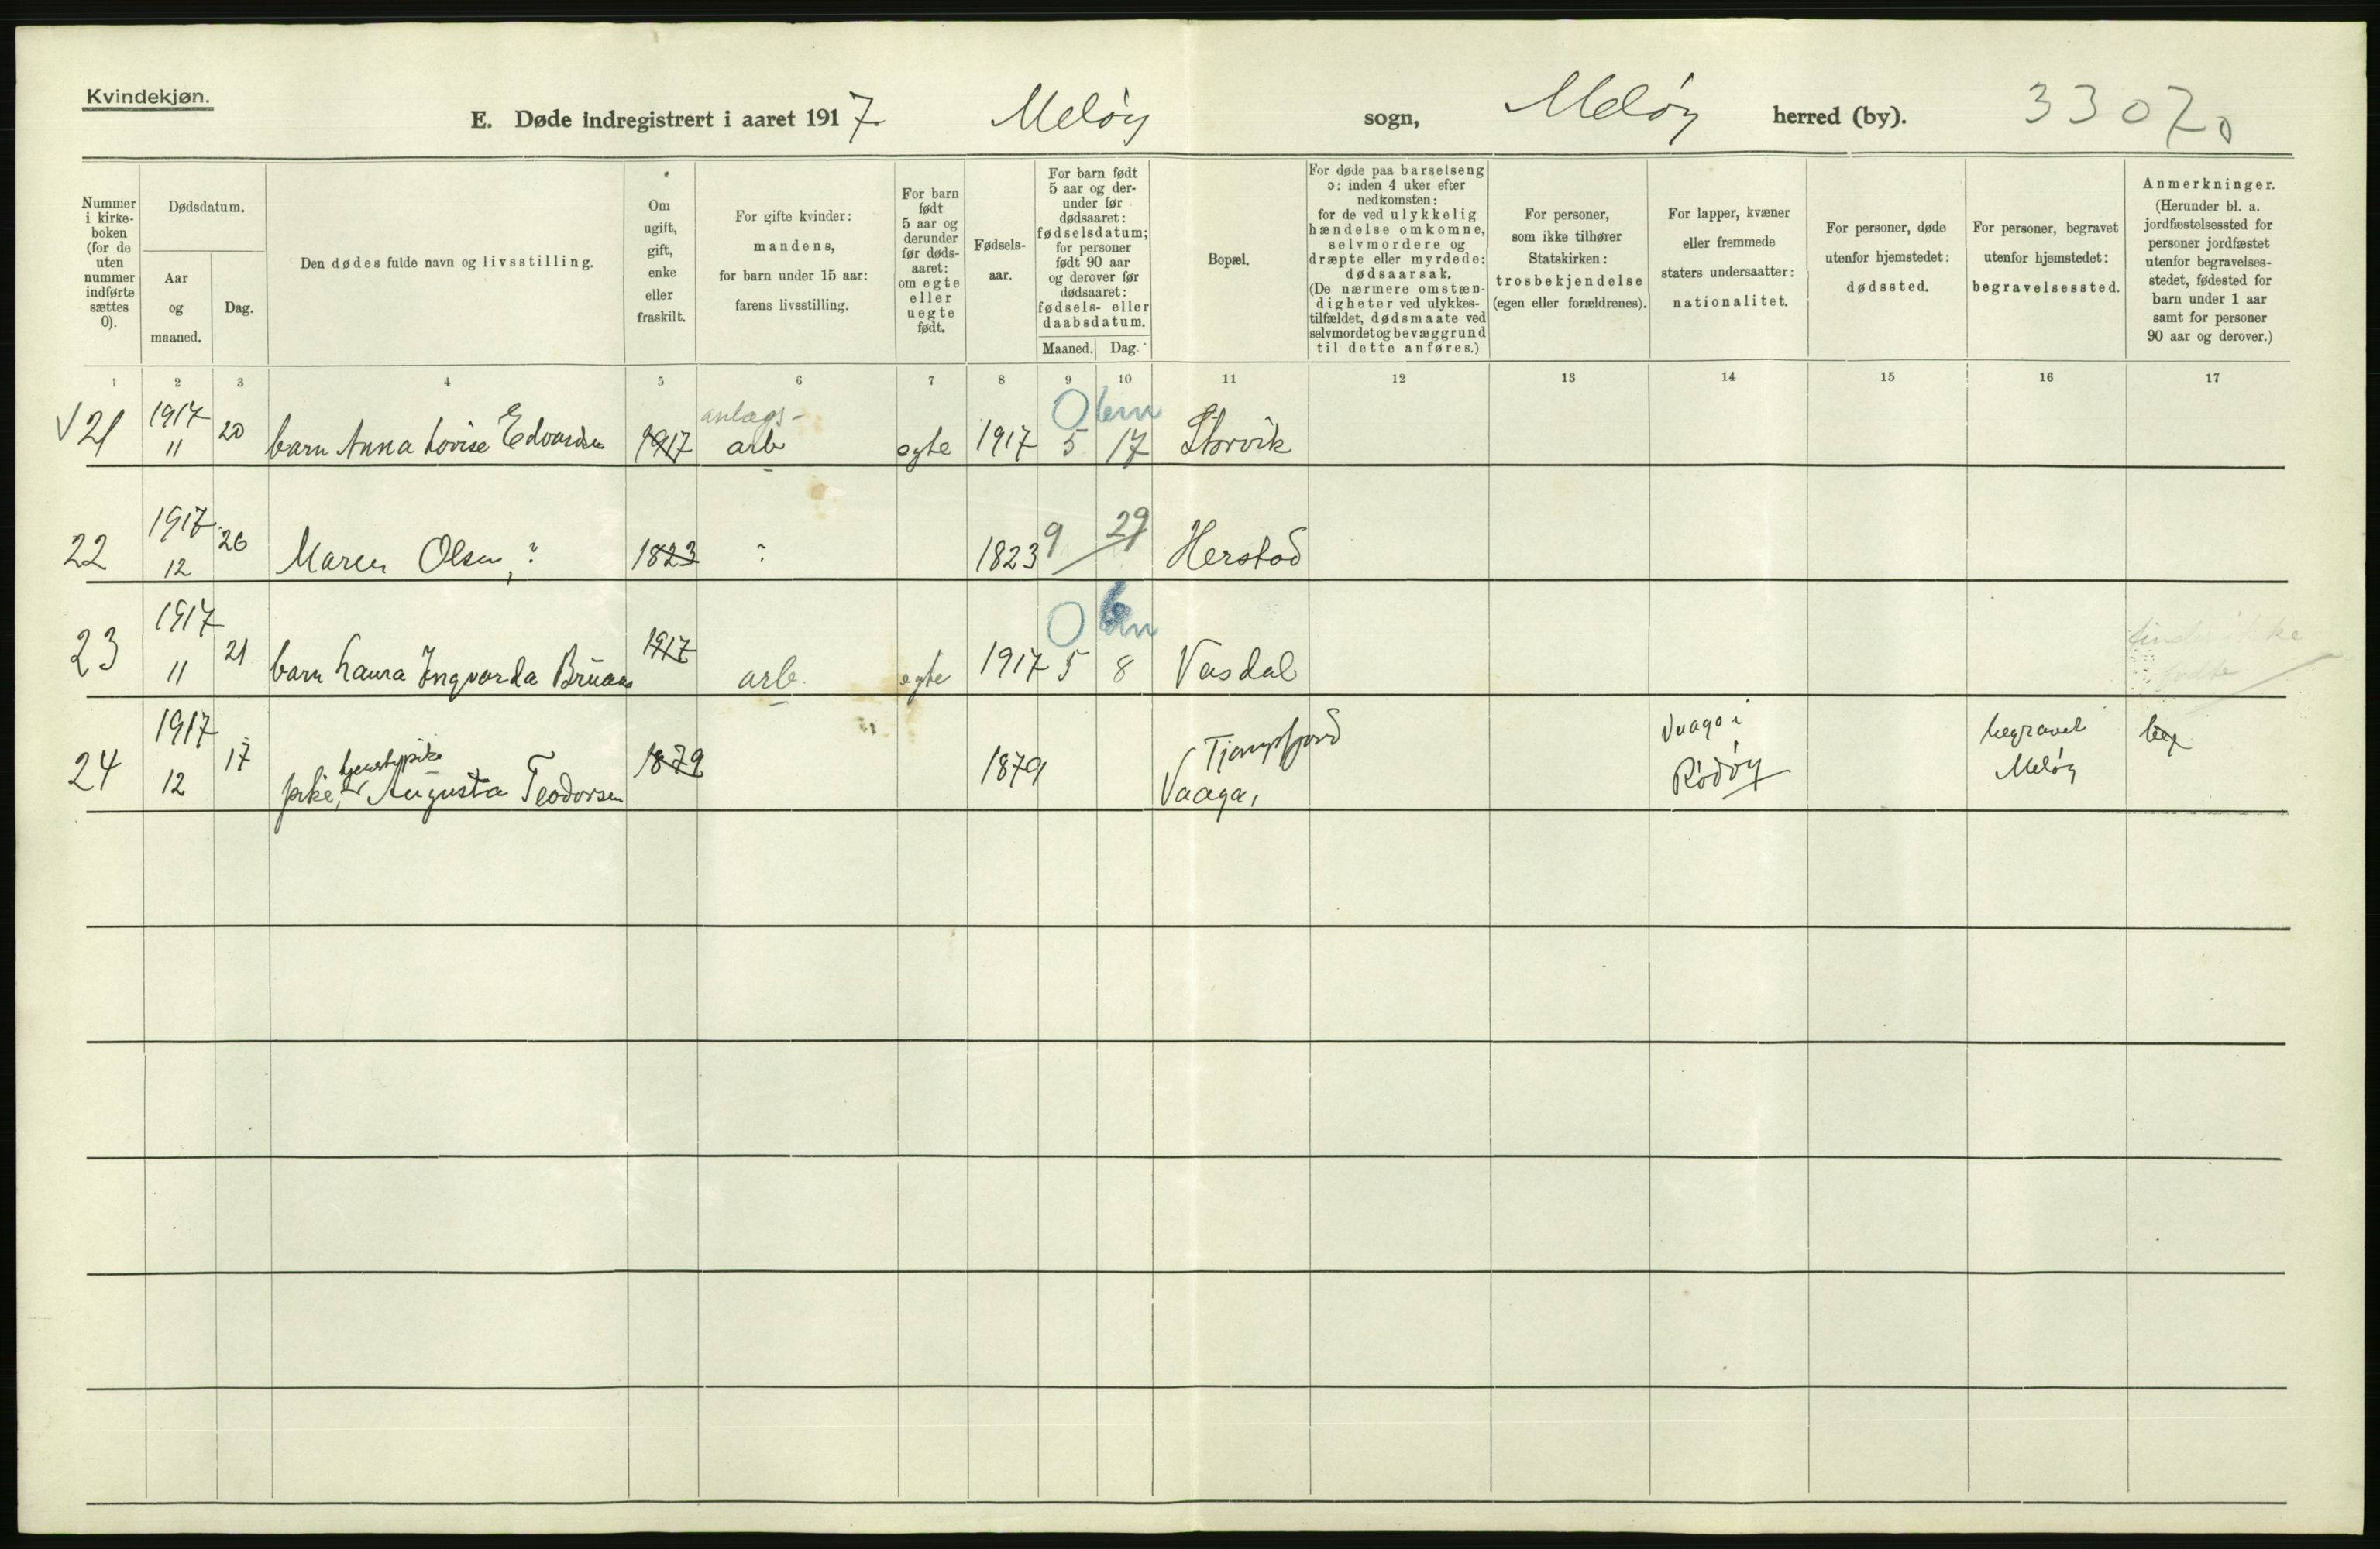 Kvindekjøn.
E. Døde indregistrert i aaret 1917. Meløy sogn, Meløy herred (by). 3307
Nummer i kirkeboken (for de uten nummer indførte sættes 0).
Dødsdatum.
Aar og maaned.
Dag.
Den dødes fulde navn og livsstilling.
Om ugift, gift, enke eller fraskilt.
For gifte kvinder: mandens, for barn under 15 aar: farens livsstilling.
For barn født 5 aar og derunder før dødsaaret: om egte eller uegte født.
Fødselsaar.
For barn født 5 aar og derunder før dødsaaret: fødselsdatum; for personer født 90 aar og derover før dødsaaret: fødsels- eller daabsdatum.
Maaned. Dag.
Bopæl.
For døde paa barselseng ɔ: inden 4 uker efter nedkomsten: for de ved ulykkelig hændelse omkomne, selvmordere og dræpte eller myrdede: dødsaarsak. (De nærmere omstændigheter ved ulykkestilfældet, dødsmaate ved selvmordet og bevæggrund til dette anføres.)
For personer, som ikke tilhører Statskirken: trosbekjendelse (egen eller forældrenes).
For lapper, kvæner eller fremmede staters undersaatter: nationalitet.
For personer, døde utenfor hjemstedet: dødssted.
For personer, begravet utenfor hjemstedet: begravelsessted.
Anmerkninger. (Herunder bl. a. jordfæstelsessted for personer jordfæstet utenfor begravelsesstedet, fødested for barn under 1 aar samt for personer 90 aar og derover.)
1 2 3 4 5 6 7 8 9 10 11 12 13 14 15 16 17
1917 anlags- 0 6m
21 11 20 barn Anna Lovise Edvardsen 1917 arb egte 1917 5 17 Storvik
1917
22 12 26 Maren Olsen, ? 1823 ? 1823 9 29 Herstad
1917 0 6m
23 11 21 barn Laura Ingvarda Bruaas 1917 arb. egte 1917 5 8 Vasdal
1917 tjenestepike Tjongsfjord Vaaga i begravet beg
24 12 17 pike, Augusta Teodorsen 1879 1879 Vaaga, Rødøy Meløy